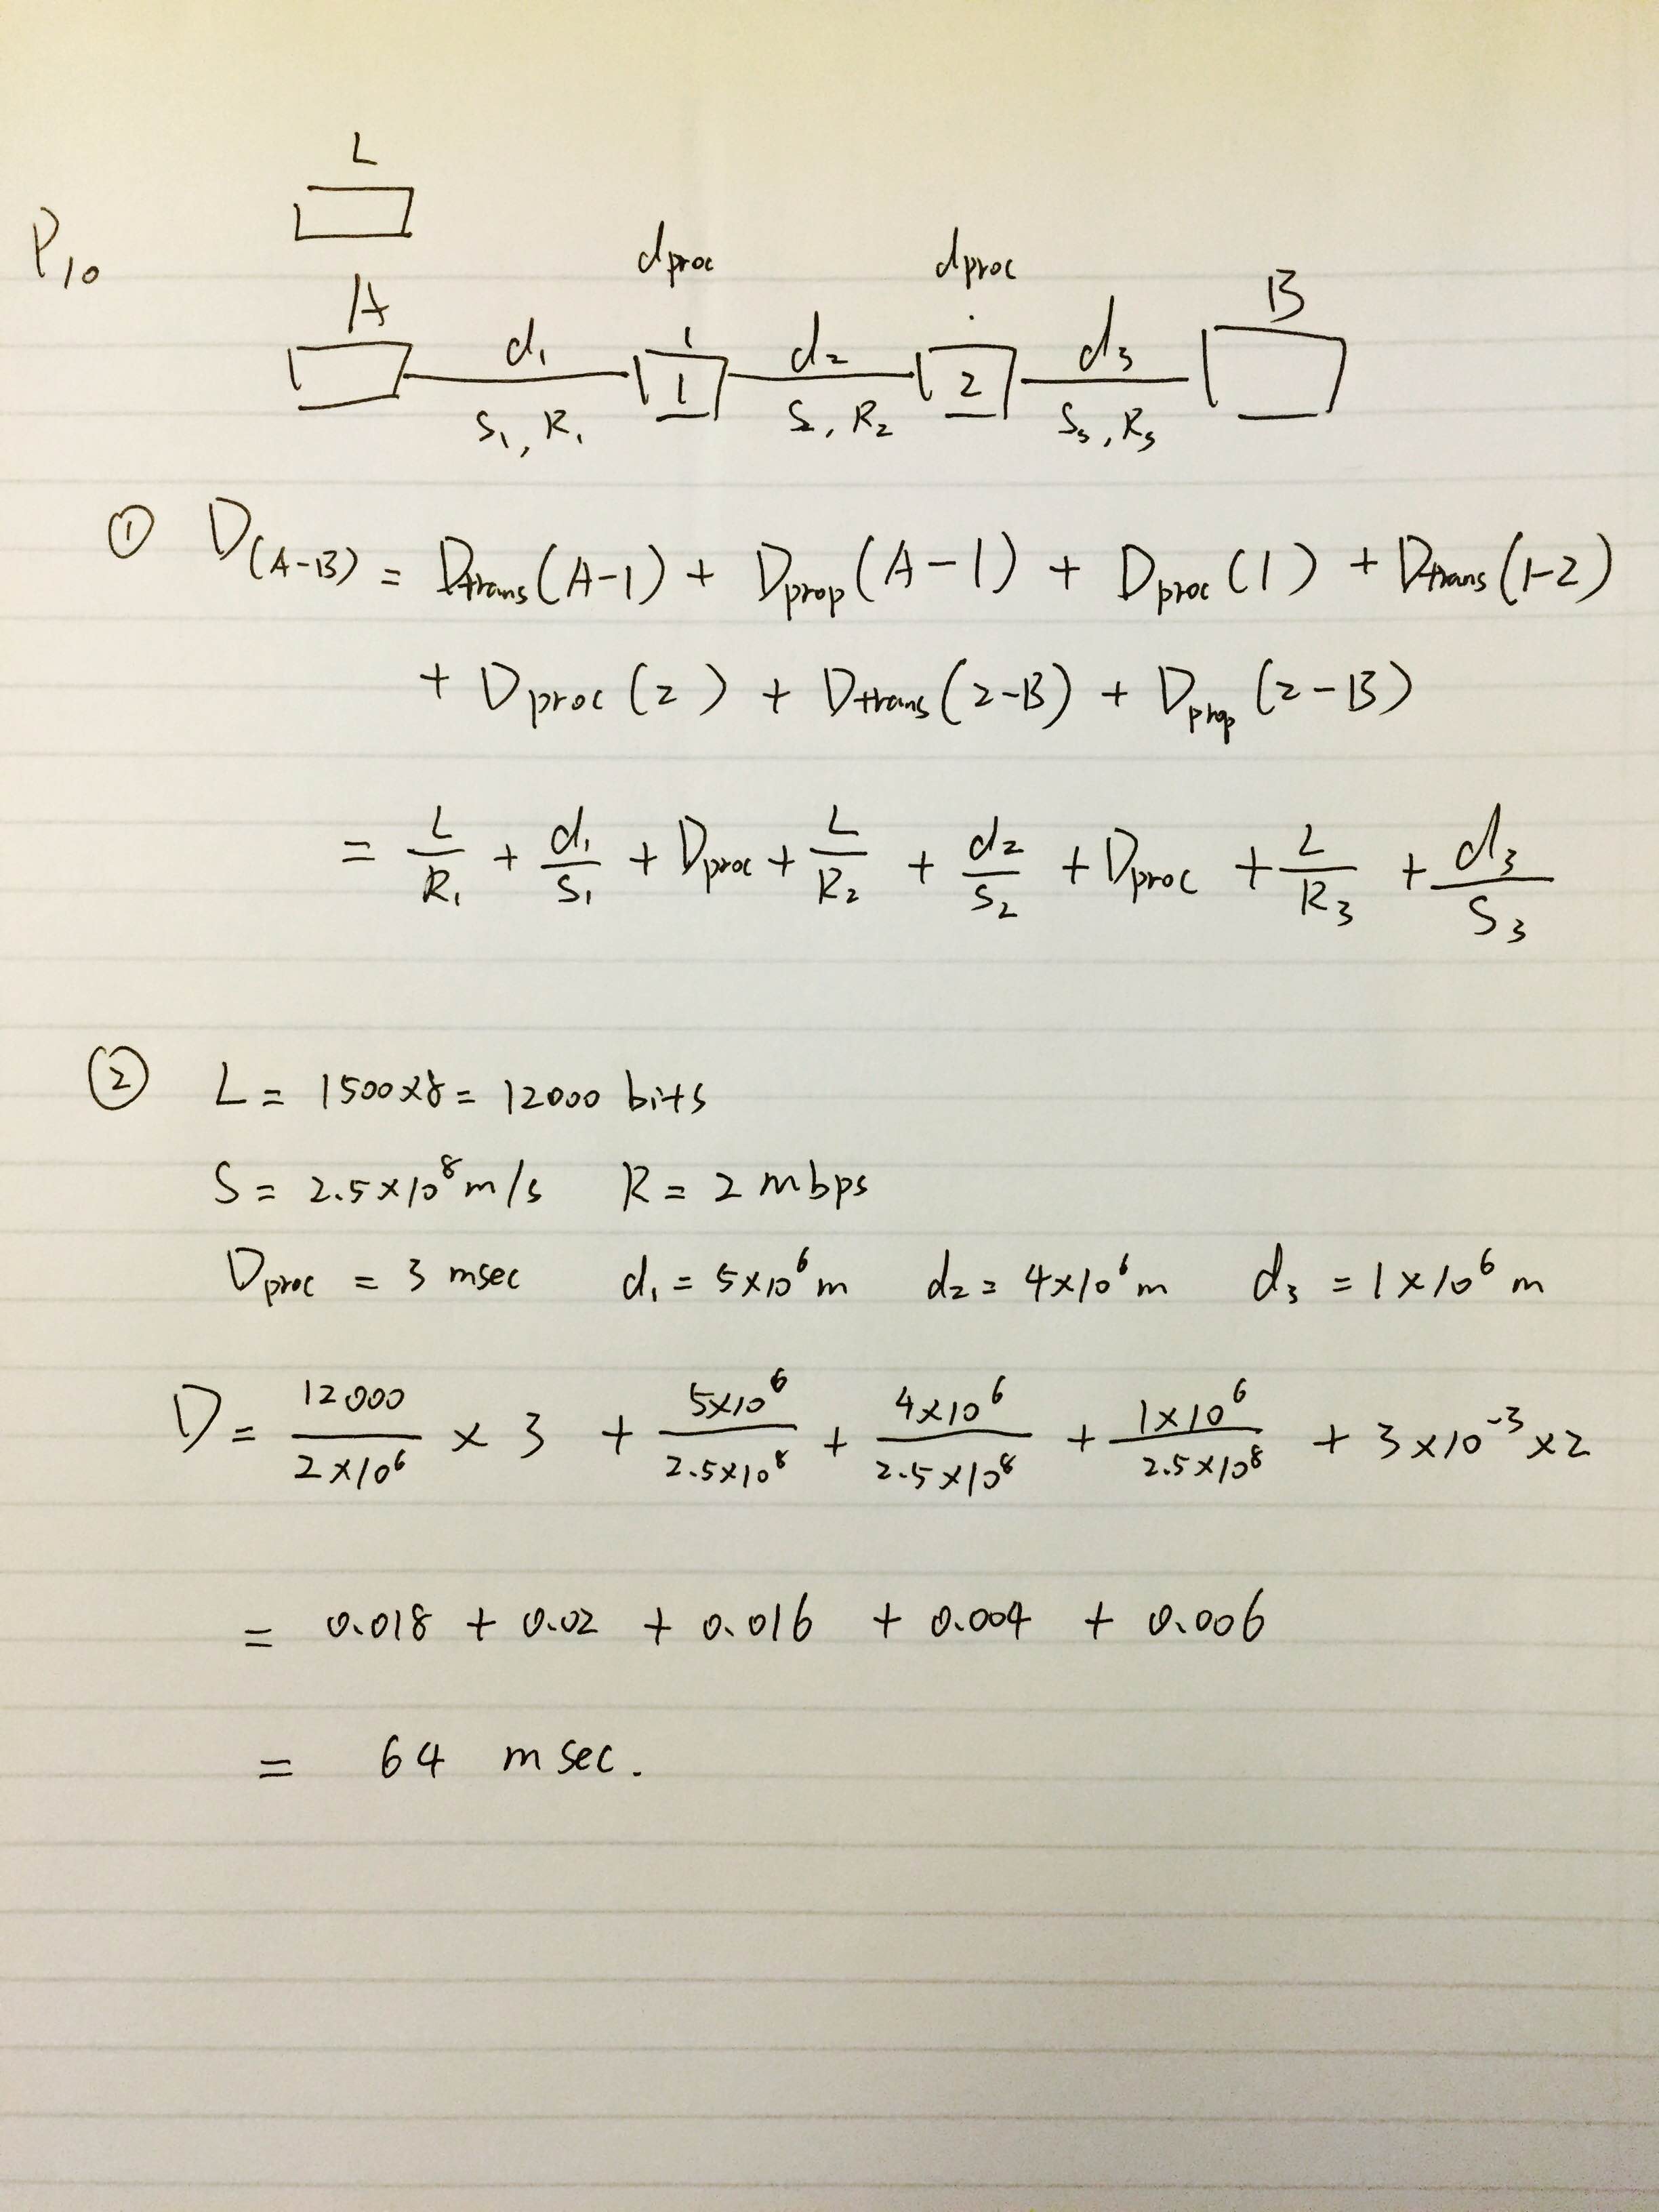 L
P10
dproc dproc
A B
d1 1 d2 2 d3
S1, R1 S2, R2 S3, R3
① D(A-B) = Dtrans(A-1) + Dprop(A-1) + Dproc(1) + Dtrans(1-2)
+ Dproc(2) + Dtrans(2-B) + Dprop(2-B)
= L/R1 + d1/S1 + Dproc + L/R2 + d2/S2 + Dproc + L/R3 + d3/S3
② L = 1500×8 = 12000 bits
S = 2.5×10^8 m/s R = 2 mbps
Dproc = 3 msec d1 = 5×10^6 m d2 = 4×10^6 m d3 = 1×10^6 m
D = 12000/2×10^6 × 3 + 5×10^6/2.5×10^8 + 4×10^6/2.5×10^8 + 1×10^6/2.5×10^8 + 3×10^-3×2
= 0.018 + 0.02 + 0.016 + 0.004 + 0.006
= 64 msec.